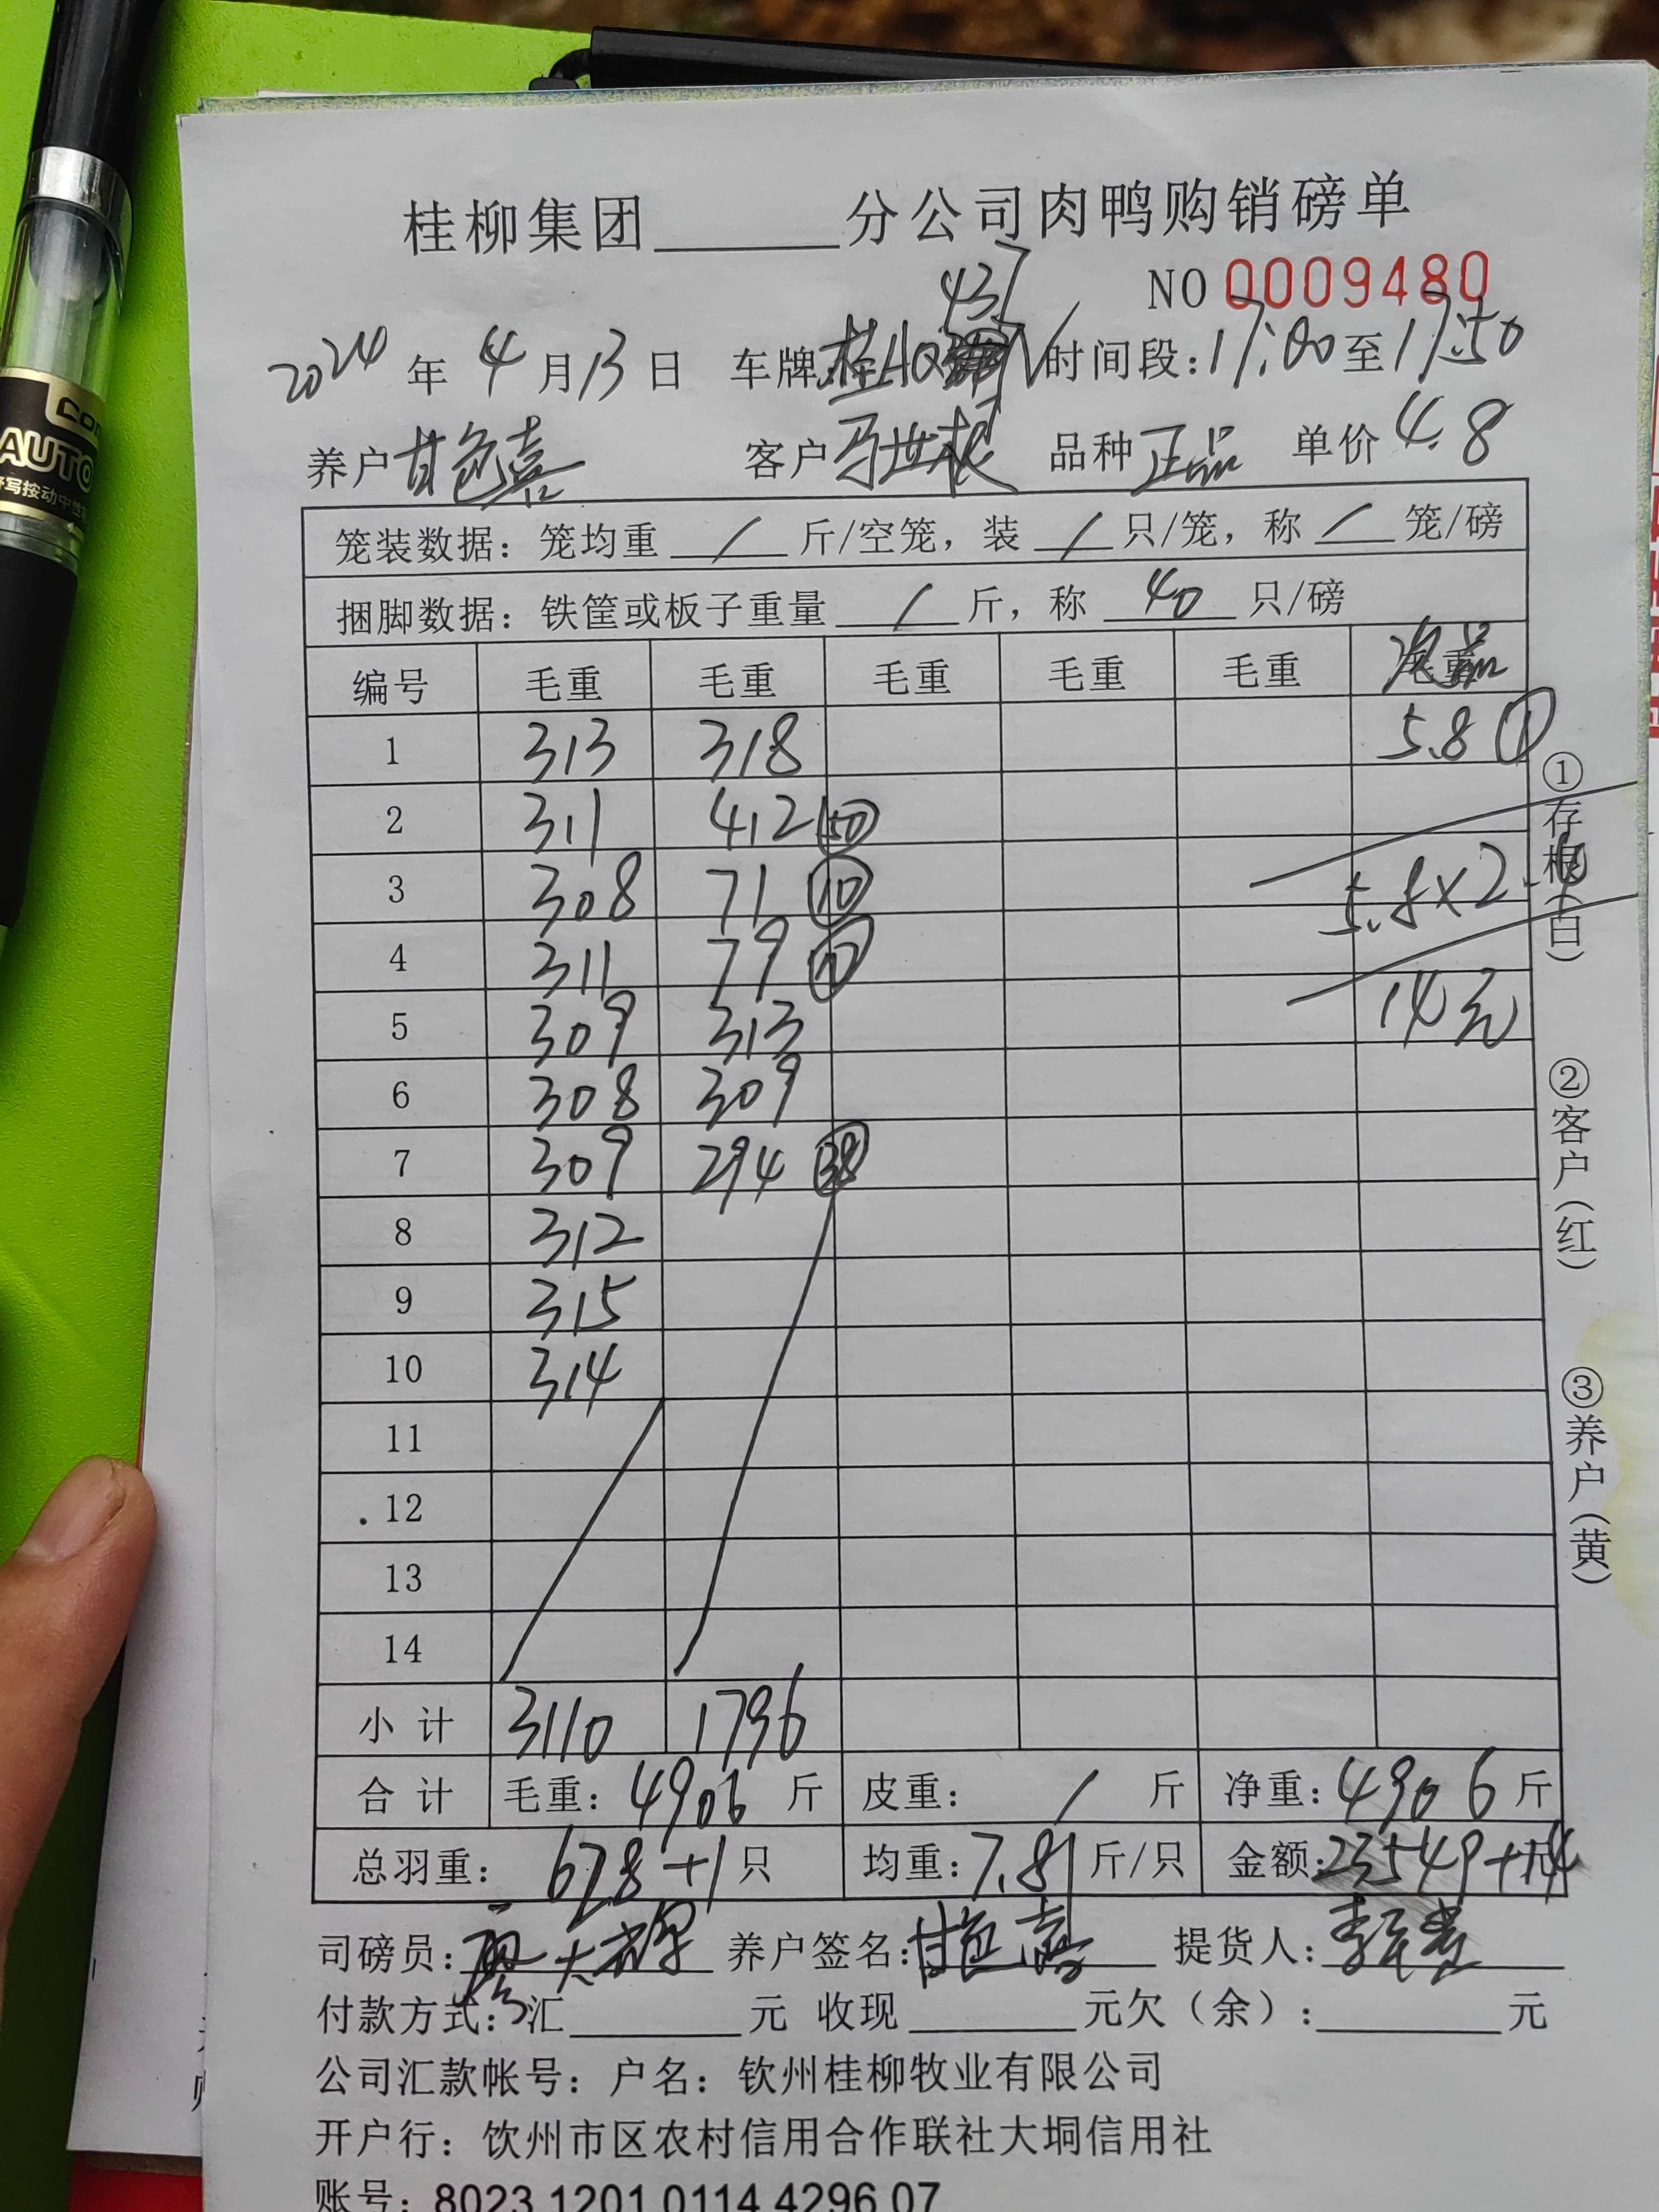 桂柳集团______分公司肉鸭购销磅单
NO 0009480
437
2024年4月13日 车牌:桂A0 V 时间段:17:00至17:50
养户甘色喜 客户马世根 品种正品 单价4.8
笼装数据：笼均重 / 斤/空笼，装 / 只/笼，称 / 笼/磅
捆脚数据：铁筐或板子重量 / 斤，称 40 只/磅
编号 毛重 毛重 毛重 毛重 毛重 次品
1 313 318 5.8 ①
2 311 412 (50)
3 308 71 (10) 5.8×2.4
4 311 79
5 309 313 14元
6 308 309
7 309 294 (38)
8 312
9 315
10 314
11
12
13
14
小计 3110 1796
合计 毛重：4906斤 皮重：/ 斤 净重：4906斤
总羽重：628+1只 均重：7.81斤/只 金额：23549+14元
司磅员：廖大 养户签名：甘色喜 提货人：李
付款方式：汇______元 收现______元欠（余）：______元
公司汇款帐号：户名：钦州桂柳牧业有限公司
开户行：饮州市区农村信用合作联社大垌信用社
账号：8023 1201 0114 4296 07
①存根（白）
②客户（红）
③养户（黄）
AUTO
写按动中性